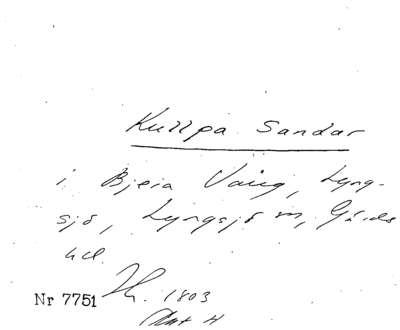 Kullpa Sandar
i Bjera Väng, Lyng-
sjö, Lyngsjö sn, Gärds
hd.
Nr 7751 1803